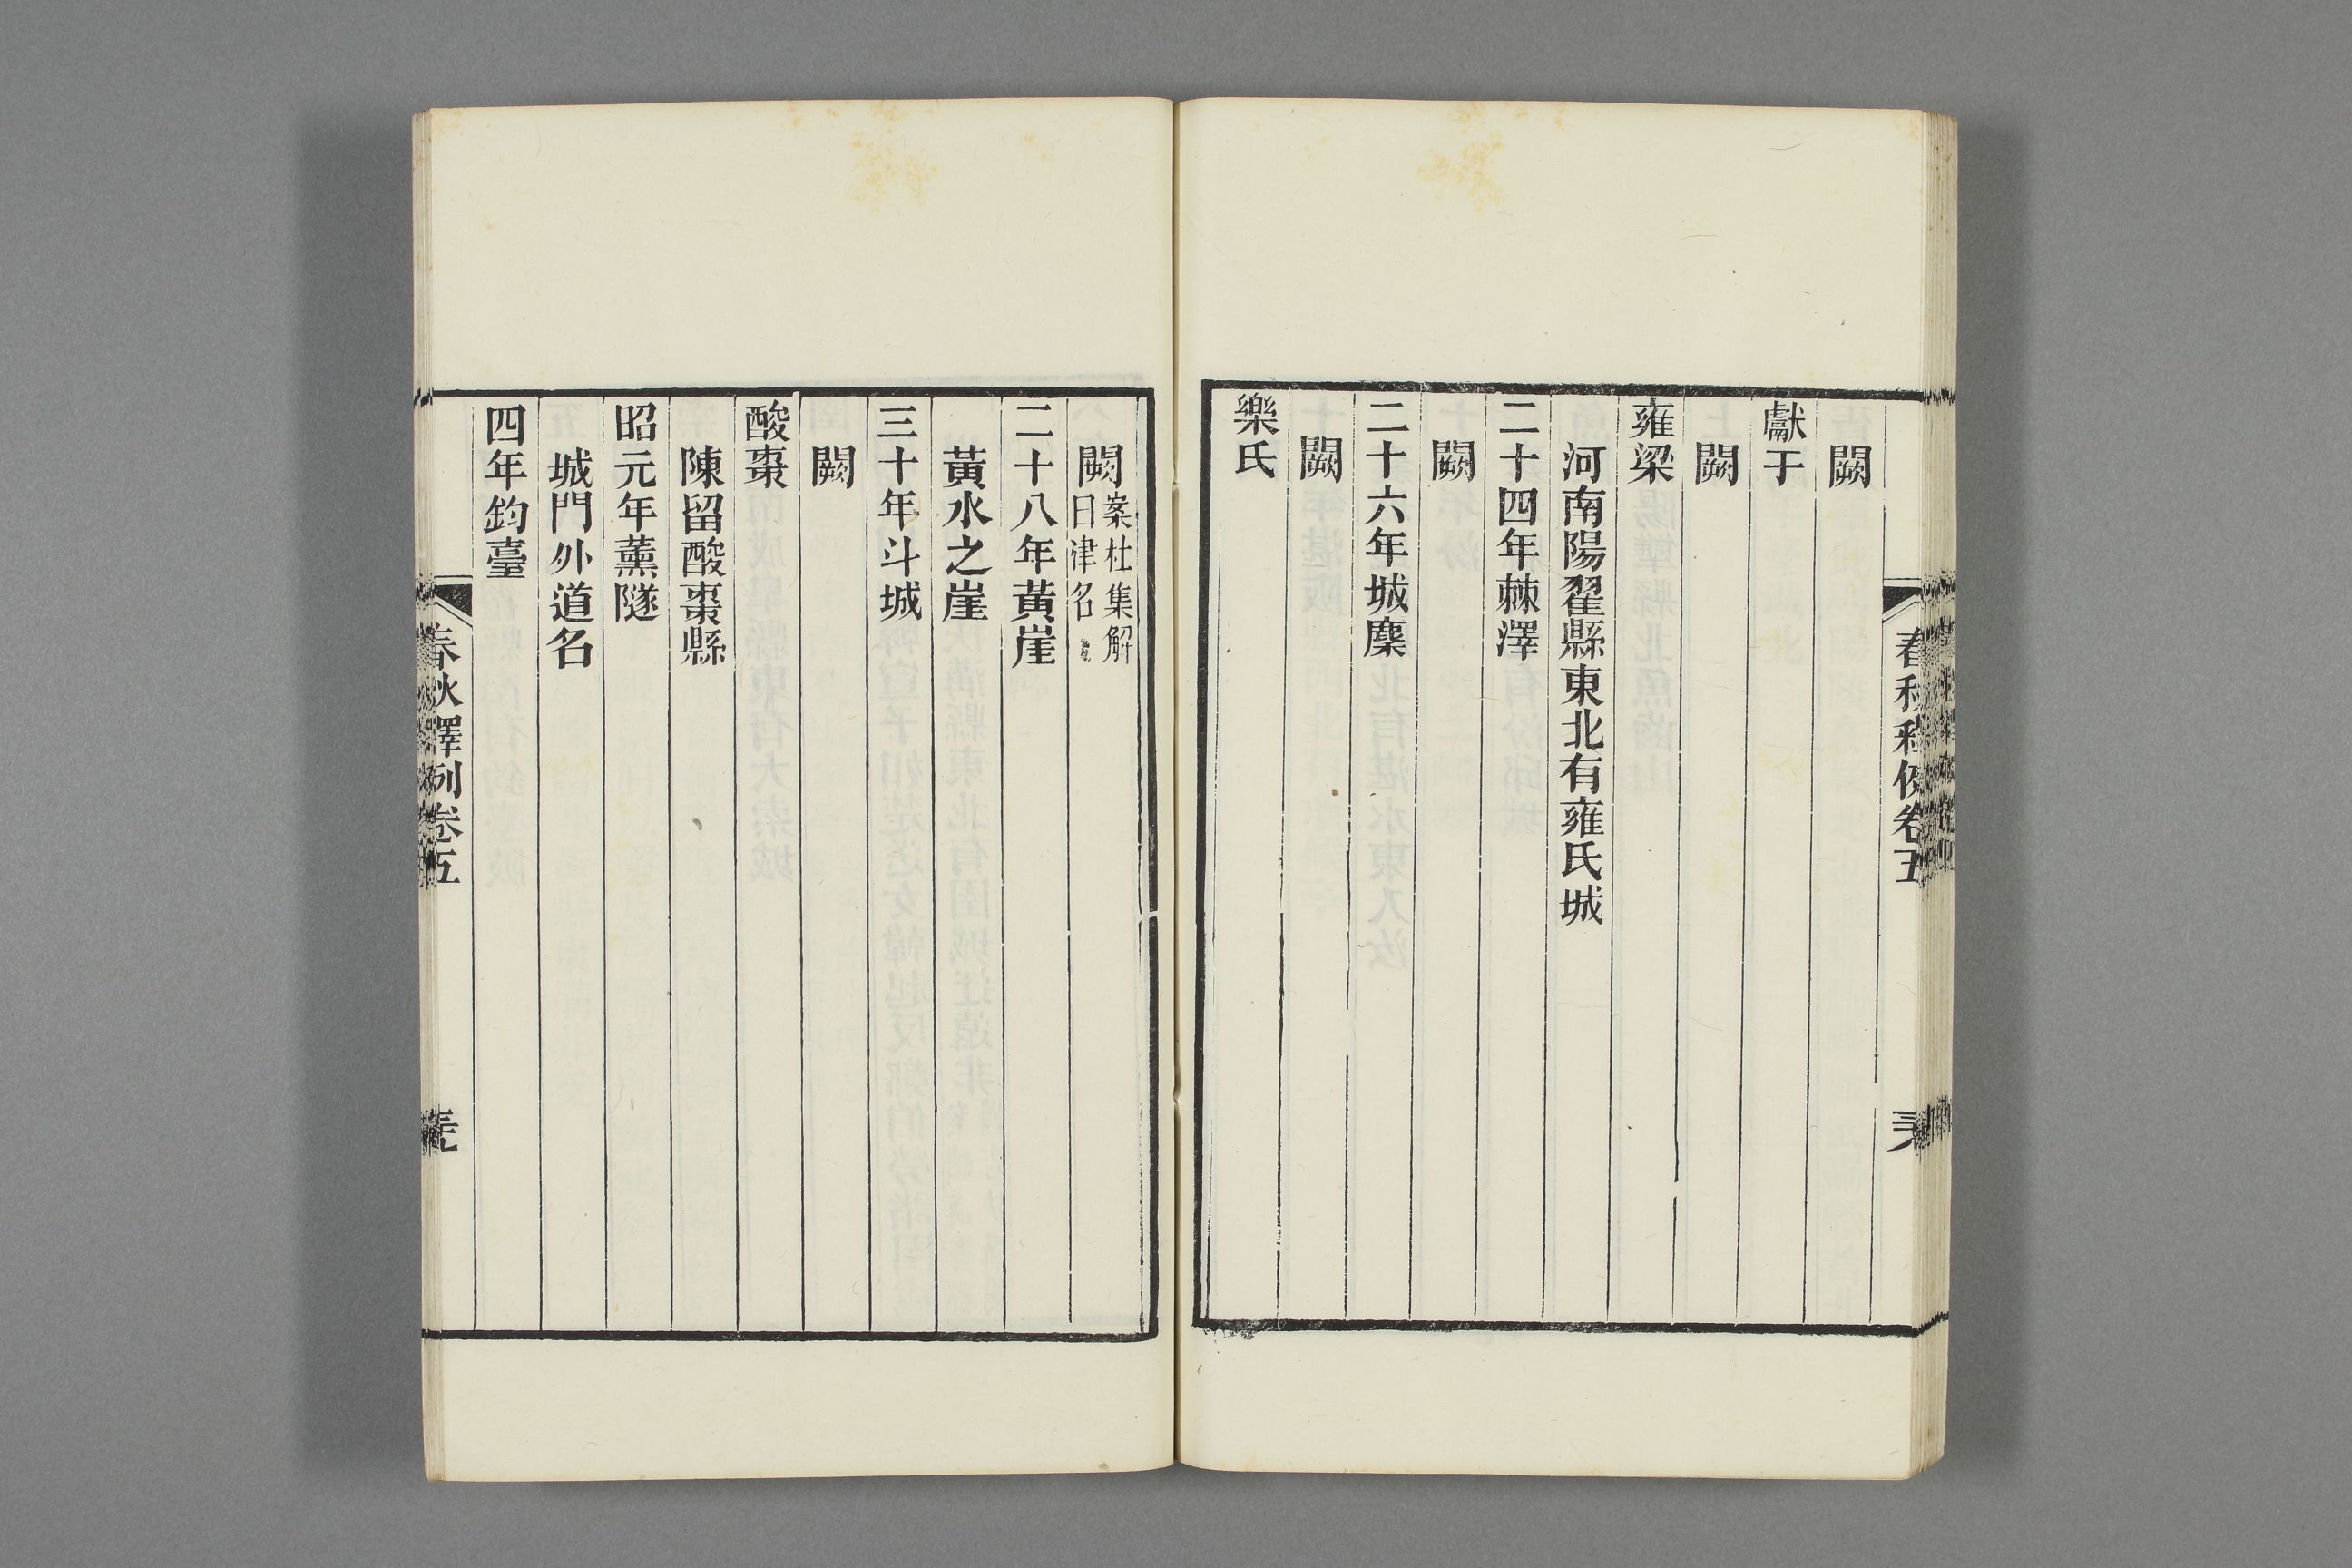 闕
獻于
闕
雍梁
河南陽翟縣東北有雍氏城
二十四年棘澤
闕
二十六年城麇
闕
樂氏
闕案杜集解
曰津名
二十八年黃崖
黃水之崖
三十年斗城
闕
酸棗
陳留酸棗縣
昭元年薰隧
城門外道名
四年鈞臺
春秋釋例卷五